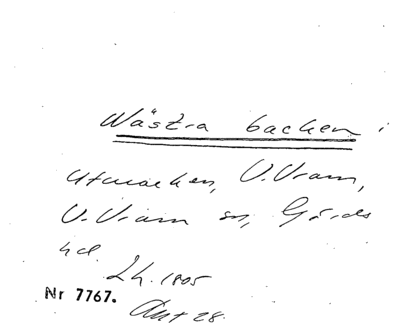 Wästra backen i
Utmarken, V. Vram,
V. Vram sn, Gärds
hd.
Lh. 1805
Nr 7767. Akt 28.